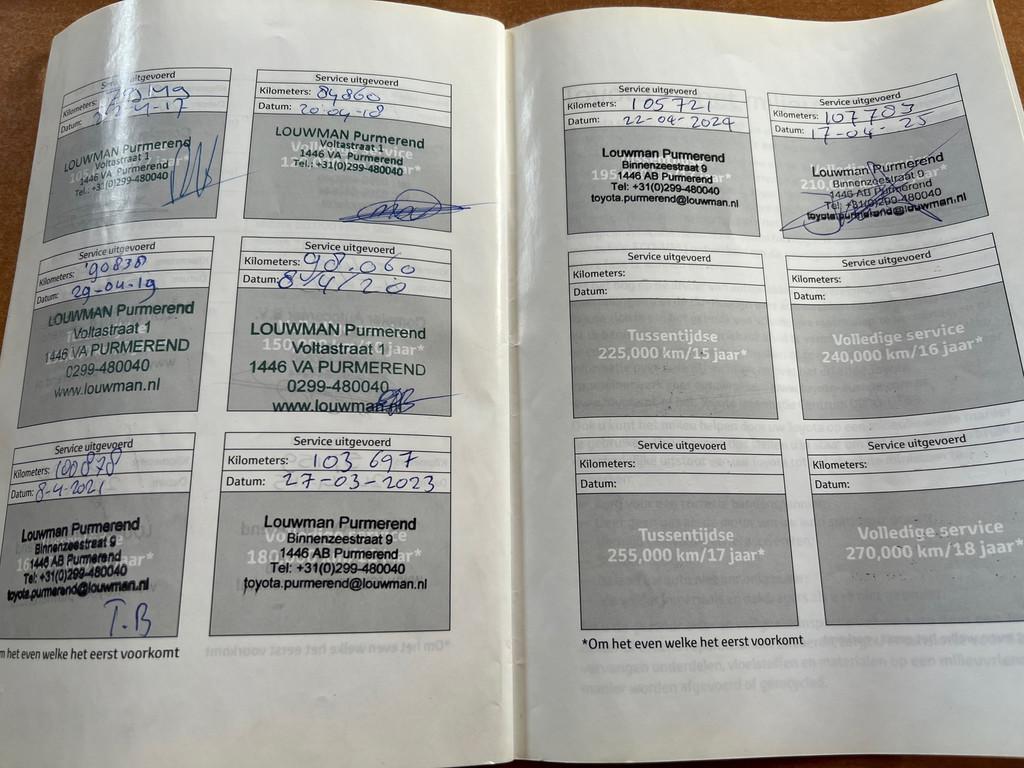 Service uitgevoerd
Kilometers:
Datum: -4-17
LOUWMAN Purmerend
Voltastraat 1
1446 VA Purmerend
Tel.: +31(0)299-480040
Service uitgevoerd
Kilometers: 84860
Datum: 20-04-18
LOUWMAN Purmerend
Voltastraat 1
1446 VA Purmerend
Tel.: +31(0)299-480040
Service uitgevoerd
Kilometers: 90838
Datum: 29-04-19
LOUWMAN Purmerend
Voltastraat 1
1446 VA PURMEREND
0299-480040
www.louwman.nl
Service uitgevoerd
Kilometers: 98.060
Datum: 8/4/20
LOUWMAN Purmerend
Voltastraat 1
1446 VA PURMEREND
0299-480040
www.louwman.nl
Service uitgevoerd
Kilometers: 100878
Datum: 8-4-2021
Louwman Purmerend
Binnenzeestraat 9
1446 AB Purmerend
Tel: +31(0)299-480040
toyota.purmerend@louwman.nl
T.B
Service uitgevoerd
Kilometers: 103 697
Datum: 27-03-2023
Louwman Purmerend
Binnenzeestraat 9
1446 AB Purmerend
Tel: +31(0)299-480040
toyota.purmerend@louwman.nl
het even welke het eerst voorkomt
Service uitgevoerd
Kilometers: 105721
Datum: 22-04-2024
Louwman Purmerend
Binnenzeestraat 9
1446 AB Purmerend
Tel: +31(0)299-480040
toyota.purmerend@louwman.nl
Service uitgevoerd
Kilometers: 107783
Datum: 17-04-25
Louwman Purmerend
Binnenzeestraat 9
1446 AB Purmerend
Tel: +31(0)299-480040
toyota.purmerend@louwman.nl
Service uitgevoerd
Kilometers:
Datum:
Tussentijdse
225,000 km/15 jaar*
Service uitgevoerd
Kilometers:
Datum:
Volledige service
240,000 km/16 jaar*
Service uitgevoerd
Kilometers:
Datum:
Tussentijdse
255,000 km/17 jaar*
Service uitgevoerd
Kilometers:
Datum:
Volledige service
270,000 km/18 jaar*
*Om het even welke het eerst voorkomt